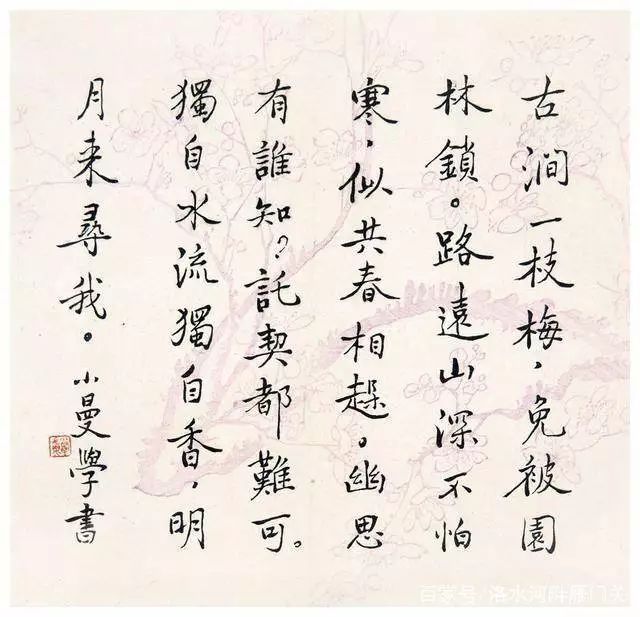 古澗一枝梅，免被園
林鎖。路遠山深不怕
寒，似共春相趓。幽思
有誰知？託契都難可。
獨自水流獨自香，明
月来尋我。小曼學書
百家号/洛水河畔雁门关